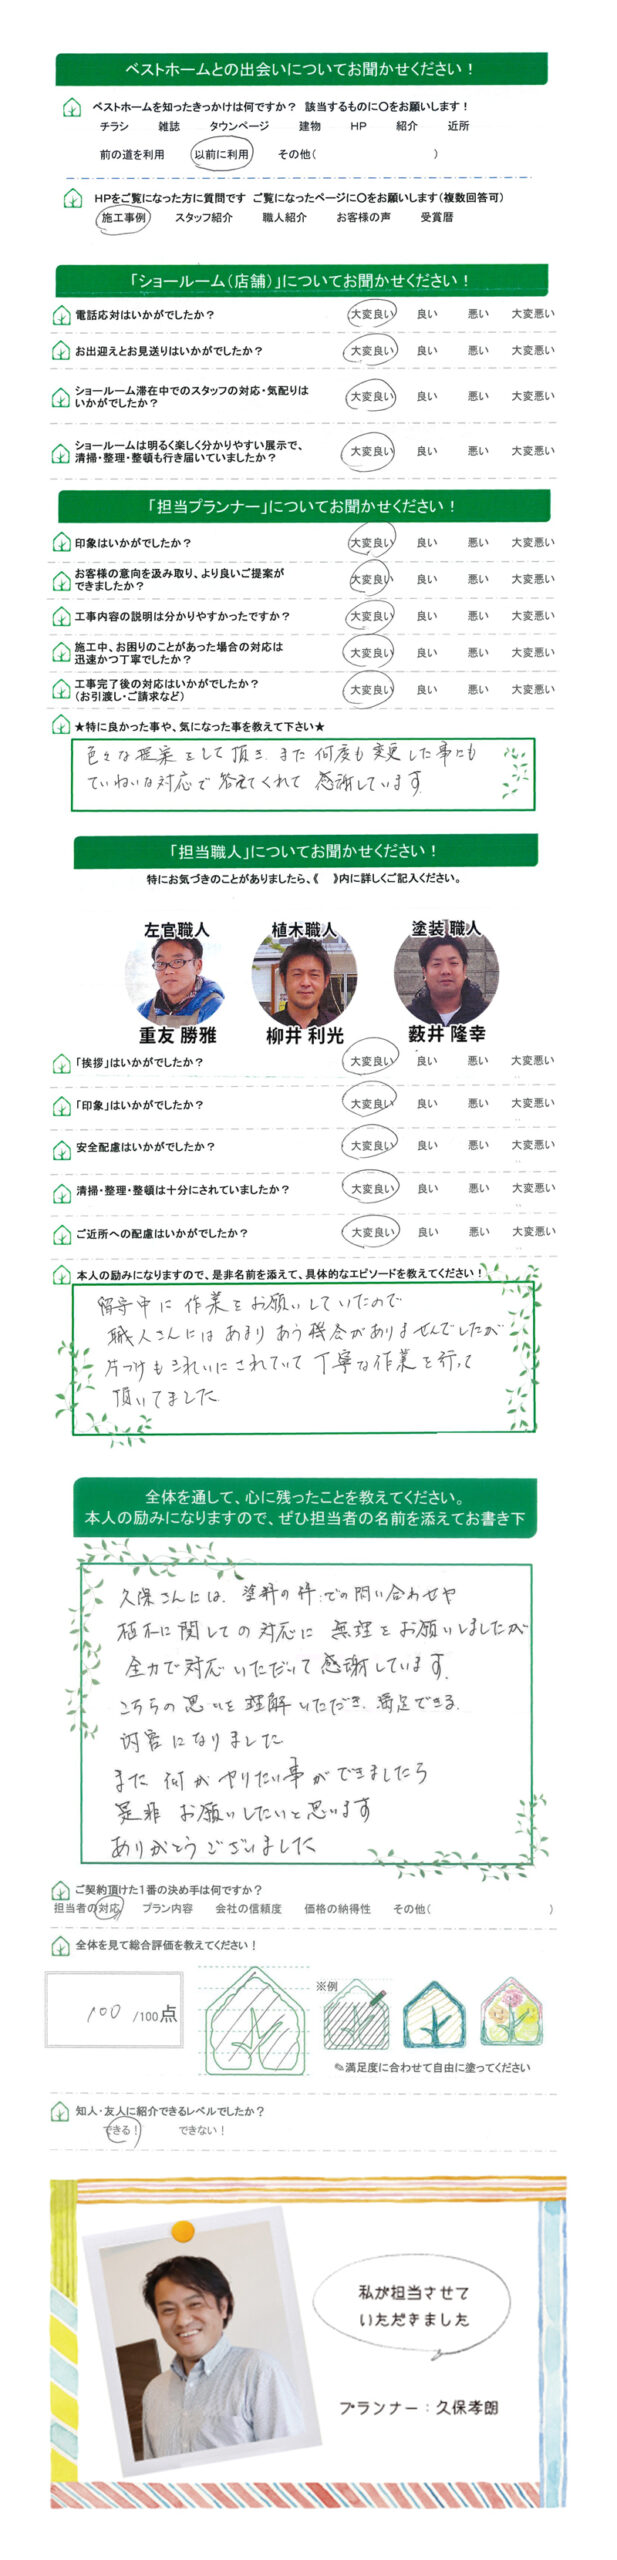 ベストホームとの出会いについてお聞かせください！
ベストホームを知ったきっかけは何ですか？ 該当するものに〇をお願いします！
チラシ 雑誌 タウンページ 建物 HP 紹介 近所
前の道を利用 以前に利用 その他( )
HPをご覧になった方に質問です ご覧になったページに〇をお願いします(複数回答可)
施工事例 スタッフ紹介 職人紹介 お客様の声 受賞暦
「ショールーム(店舗)」についてお聞かせください！
電話応対はいかがでしたか？ 大変良い 良い 悪い 大変悪い
お出迎えとお見送りはいかがでしたか？ 大変良い 良い 悪い 大変悪い
ショールーム滞在中でのスタッフの対応・気配りは
いかがでしたか？ 大変良い 良い 悪い 大変悪い
ショールームは明るく楽しく分かりやすい展示で、
清掃・整理・整頓も行き届いていましたか？ 大変良い 良い 悪い 大変悪い
「担当プランナー」についてお聞かせください！
印象はいかがでしたか？ 大変良い 良い 悪い 大変悪い
お客様の意向を汲み取り、より良いご提案が
できましたか？ 大変良い 良い 悪い 大変悪い
工事内容の説明は分かりやすかったですか？ 大変良い 良い 悪い 大変悪い
施工中、お困りのことがあった場合の対応は
迅速かつ丁寧でしたか？ 大変良い 良い 悪い 大変悪い
工事完了後の対応はいかがでしたか？
(お引渡し・ご請求など) 大変良い 良い 悪い 大変悪い
★特に良かった事や、気になった事を教えて下さい★
色々な提案をして頂き、また何度も変更した事にも
ていねいな対応で答えてくれて感謝しています。
「担当職人」についてお聞かせください！
特にお気づきのことがありましたら、《 》内に詳しくご記入ください。
左官職人 植木職人 塗装職人
重友 勝雅 柳井 利光 薮井 隆幸
「挨拶」はいかがでしたか？ 大変良い 良い 悪い 大変悪い
「印象」はいかがでしたか？ 大変良い 良い 悪い 大変悪い
安全配慮はいかがでしたか？ 大変良い 良い 悪い 大変悪い
清掃・整理・整頓は十分にされていましたか？ 大変良い 良い 悪い 大変悪い
ご近所への配慮はいかがでしたか？ 大変良い 良い 悪い 大変悪い
本人の励みになりますので、是非名前を添えて、具体的なエピソードを教えてください！
留守中に作業をお願いしていたので
職人さんにはあまりあう機会がありませんでしたが
片づけもきれいにされていて丁寧な作業を行って
頂いてました
全体を通して、心に残ったことを教えてください。
本人の励みになりますので、ぜひ担当者の名前を添えてお書き下
久保さんには、塗料の件での問い合わせや
植木に関しての対応に無理をお願いしましたが
全力で対応いただいて感謝しています。
こちらの思いを理解いただき、満足できる
内容になりました
また何かやりたい事ができましたら
是非お願いしたいと思います
ありがとうございました
ご契約頂けた1番の決め手は何ですか？
担当者の対応 プラン内容 会社の信頼度 価格の納得性 その他( )
全体を見て総合評価を教えてください！
100 /100点
※例
✎満足度に合わせて自由に塗ってください
知人・友人に紹介できるレベルでしたか？
できる！ できない！
私が担当させて
いただきました
プランナー：久保孝朗